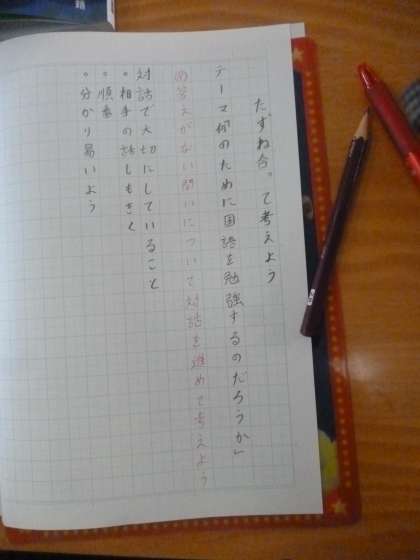 たずね合って考えよう
テーマ「何のために国語を勉強するのだろうか」
め答えがない問いについて対話を進めて考えよう
対話で大切にしていること
・相手の話しもきく
・順番
・分かり易いよう